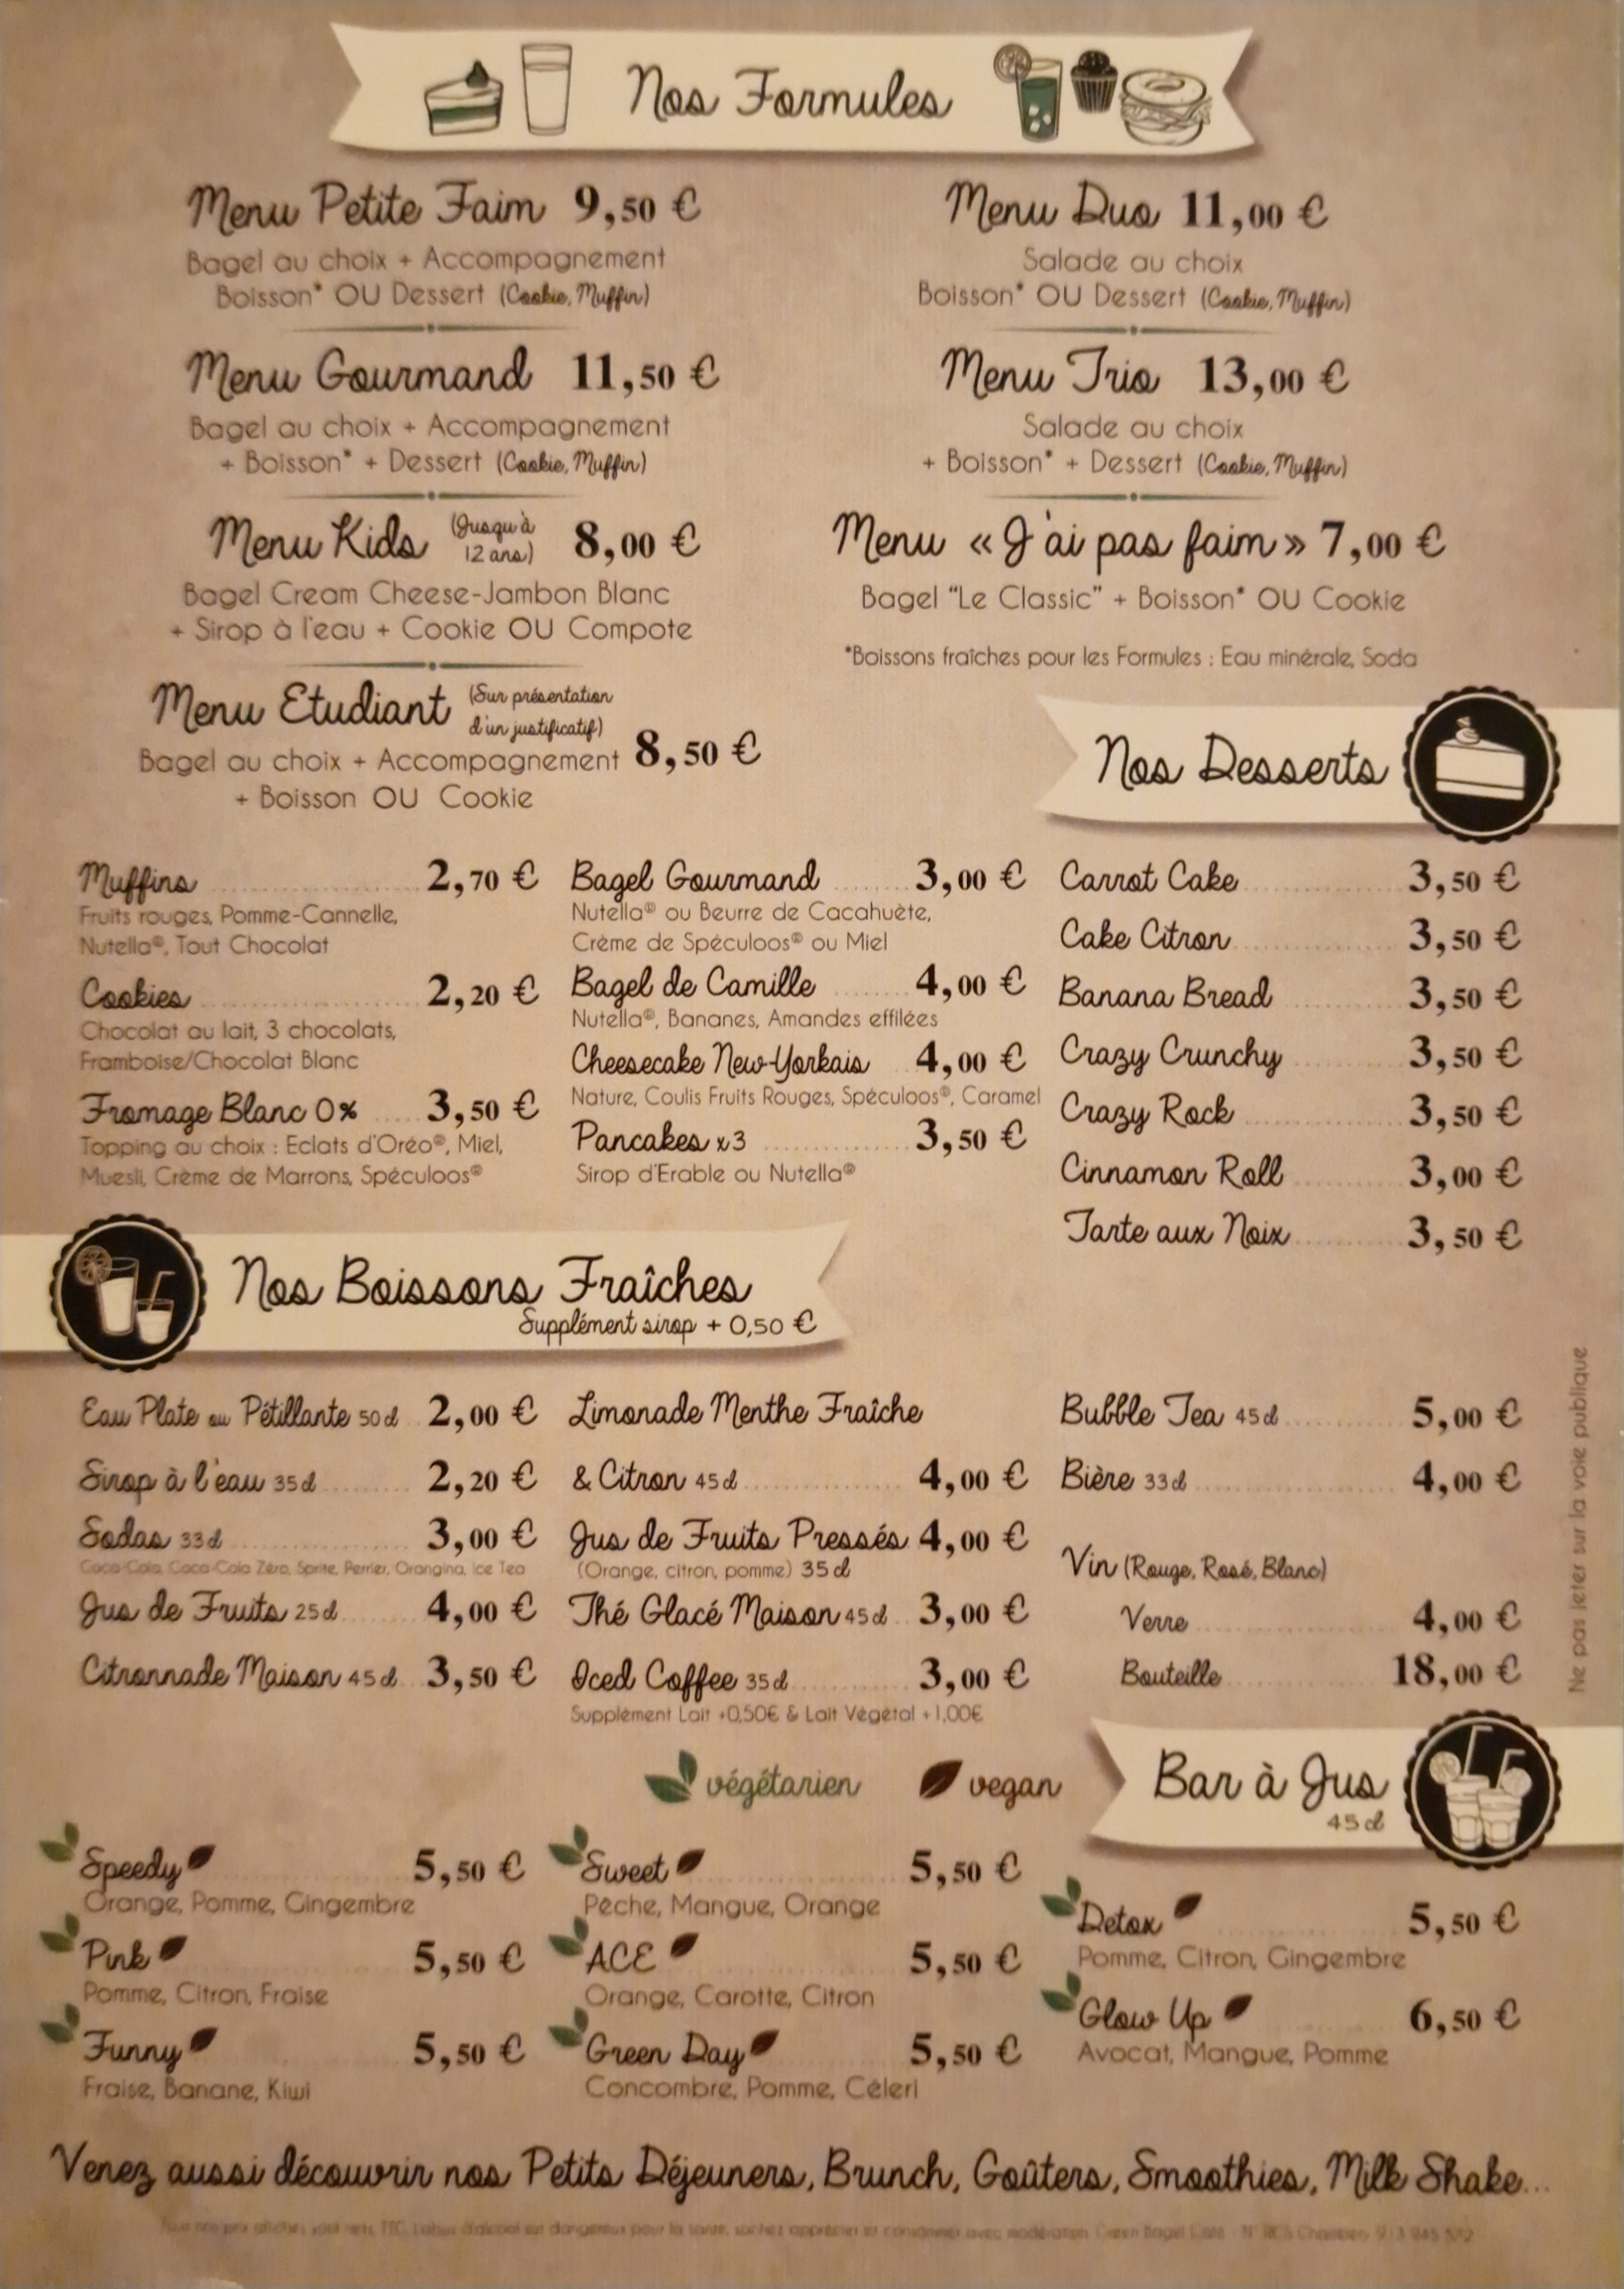 Nos Formules
Menu Petite Faim 9,50 €
Bagel au choix + Accompagnement
Boisson* OU Dessert (Cookie, Muffin)
Menu Gourmand 11,50 €
Bagel au choix + Accompagnement
+ Boisson* + Dessert (Cookie, Muffin)
Menu Kids (Jusqu'à 12 ans) 8,00 €
Bagel Cream Cheese-Jambon Blanc
+ Sirop à l'eau + Cookie OU Compote
Menu Etudiant (Sur présentation d'un justificatif) 8,50 €
Bagel au choix + Accompagnement
+ Boisson OU Cookie
Menu Duo 11,00 €
Salade au choix
Boisson* OU Dessert (Cookie, Muffin)
Menu Trio 13,00 €
Salade au choix
+ Boisson* + Dessert (Cookie, Muffin)
Menu « J'ai pas faim » 7,00 €
Bagel "Le Classic" + Boisson* OU Cookie
*Boissons fraîches pour les Formules : Eau minérale, Soda
Nos Desserts
Muffins 2,70 €
Fruits rouges, Pomme-Cannelle,
Nutella®, Tout Chocolat
Cookies 2,20 €
Chocolat au lait, 3 chocolats,
Framboise/Chocolat Blanc
Fromage Blanc 0% 3,50 €
Topping au choix : Eclats d'Oréo®, Miel,
Muesli, Crème de Marrons, Spéculoos®
Bagel Gourmand 3,00 €
Nutella® ou Beurre de Cacahuète,
Crème de Spéculoos® ou Miel
Bagel de Camille 4,00 €
Nutella®, Bananes, Amandes effilées
Cheesecake New-Yorkais 4,00 €
Nature, Coulis Fruits Rouges, Spéculoos®, Caramel
Pancakes x3 3,50 €
Sirop d'Erable ou Nutella®
Carrot Cake 3,50 €
Cake Citron 3,50 €
Banana Bread 3,50 €
Crazy Crunchy 3,50 €
Crazy Rock 3,50 €
Cinnamon Roll 3,00 €
Tarte aux Noix 3,50 €
Nos Boissons Fraîches
Supplément sirop + 0,50 €
Eau Plate ou Pétillante 50 cl 2,00 €
Sirop à l'eau 35 cl 2,20 €
Sodas 33 cl 3,00 €
Coca-Cola, Coca-Cola Zéro, Sprite, Perrier, Orangina, Ice Tea
Jus de Fruits 25 cl 4,00 €
Citronnade Maison 45 cl 3,50 €
Limonade Menthe Fraîche
& Citron 45 cl 4,00 €
Jus de Fruits Pressés 4,00 €
(Orange, citron, pomme) 35 cl
Thé Glacé Maison 45 cl 3,00 €
Iced Coffee 35 cl 3,00 €
Supplément Lait +0,50€ & Lait Végétal +1,00€
Bubble Tea 45 cl 5,00 €
Bière 33 cl 4,00 €
Vin (Rouge, Rosé, Blanc)
Verre 4,00 €
Bouteille 18,00 €
Ne pas jeter sur la voie publique
végétarien vegan
Bar à Jus
45 cl
Speedy 5,50 €
Orange, Pomme, Gingembre
Pink 5,50 €
Pomme, Citron, Fraise
Funny 5,50 €
Fraise, Banane, Kiwi
Sweet 5,50 €
Pêche, Mangue, Orange
ACE 5,50 €
Orange, Carotte, Citron
Green Day 5,50 €
Concombre, Pomme, Céleri
Detox 5,50 €
Pomme, Citron, Gingembre
Glow Up 6,50 €
Avocat, Mangue, Pomme
Venez aussi découvrir nos Petits Déjeuners, Brunch, Goûters, Smoothies, Milk Shake...
Tous nos prix affichés sont nets, TTC. L'abus d'alcool est dangereux pour la santé, sachez apprécier et consommer avec modération. Green Bagel Café - N° RCS